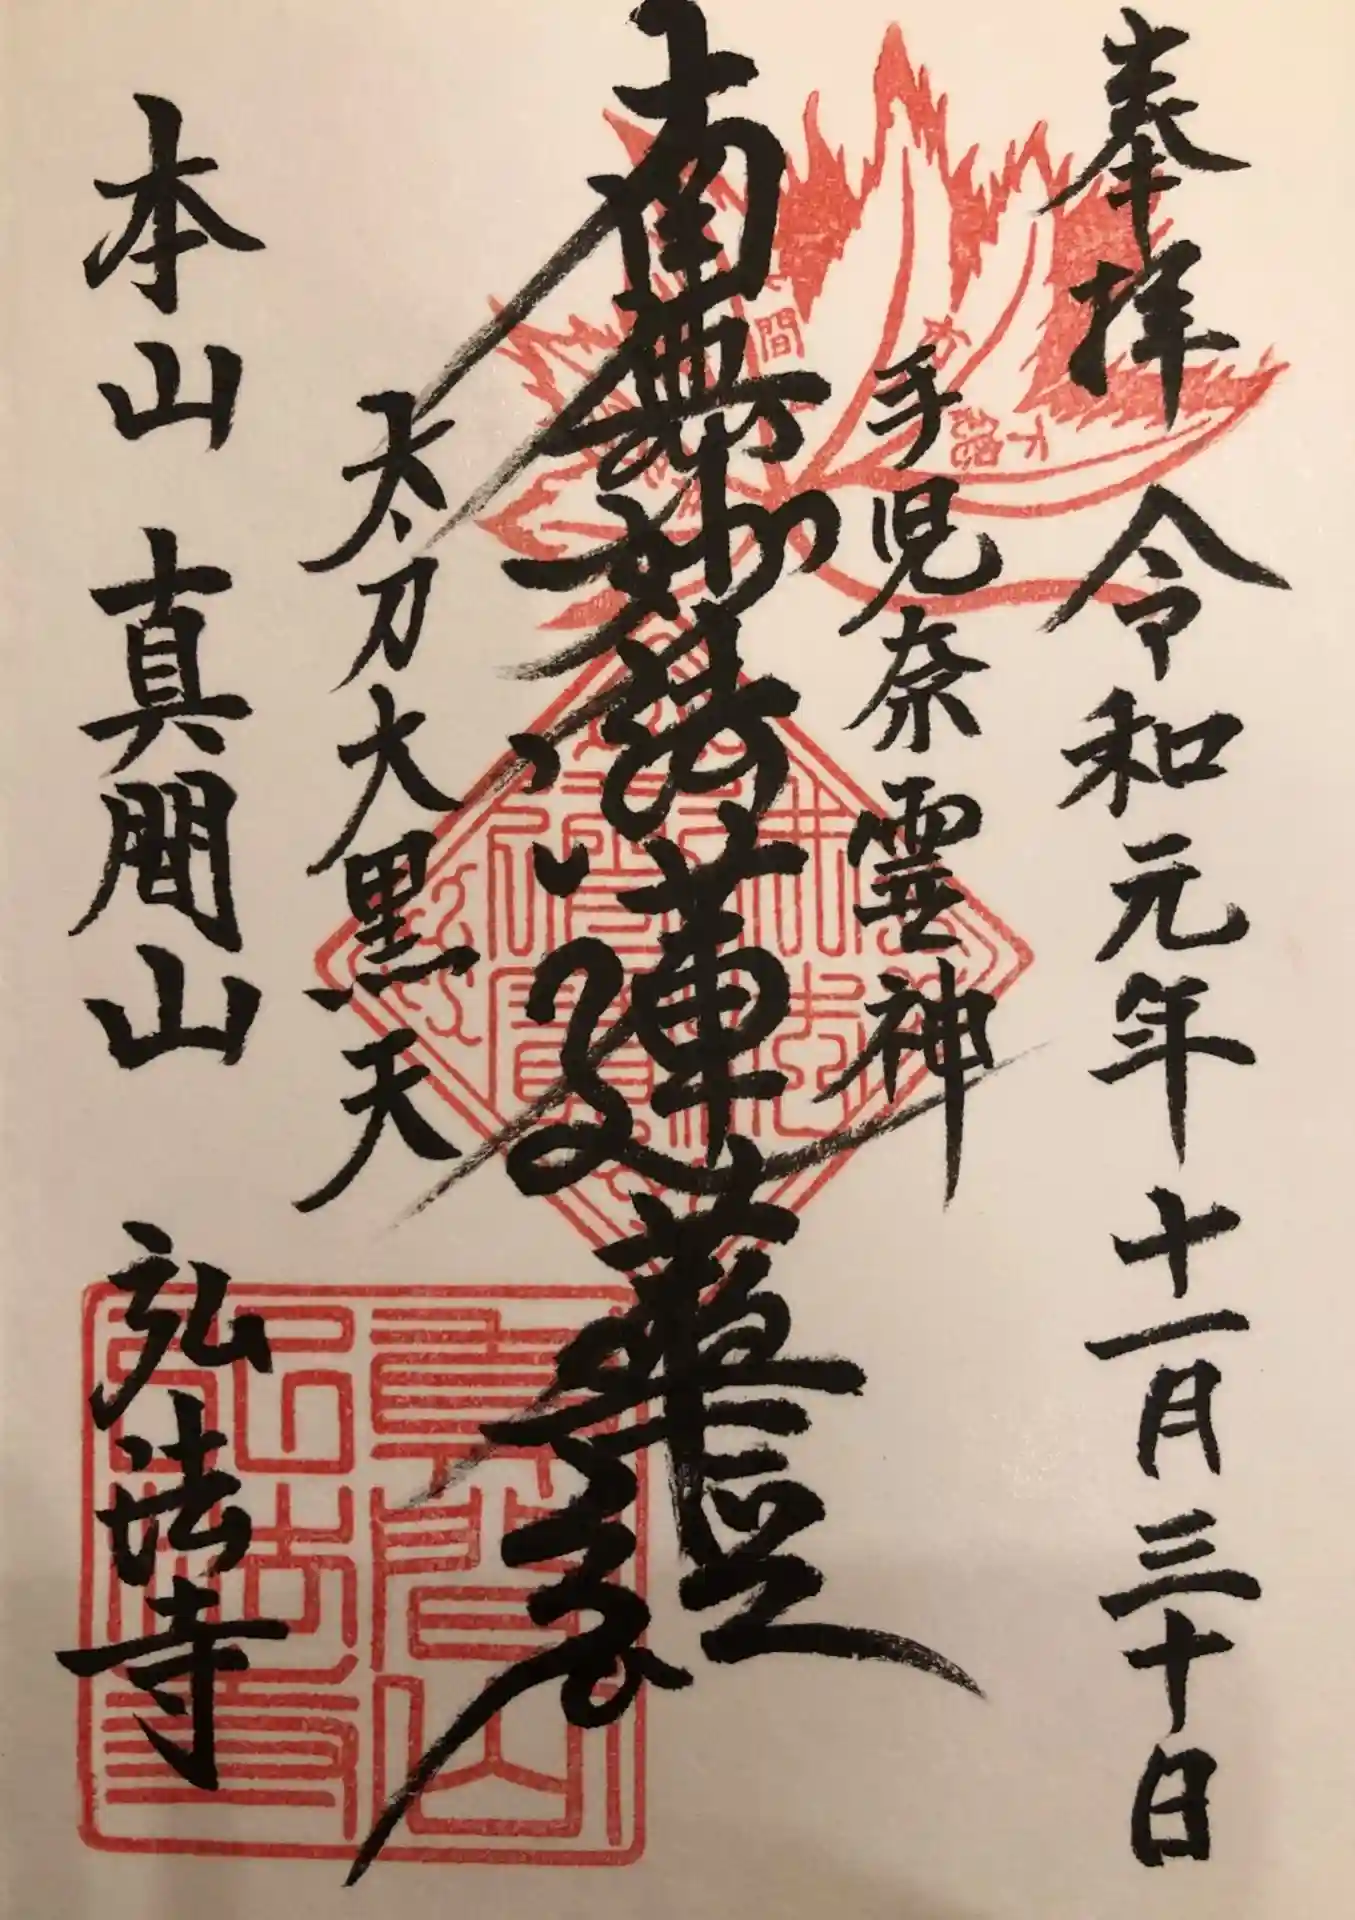 奉拝　令和元年十一月三十日
手児奈霊神
南無妙法蓮華経
太刀大黒天
本山　真間山　弘法寺
真間山
弘法寺